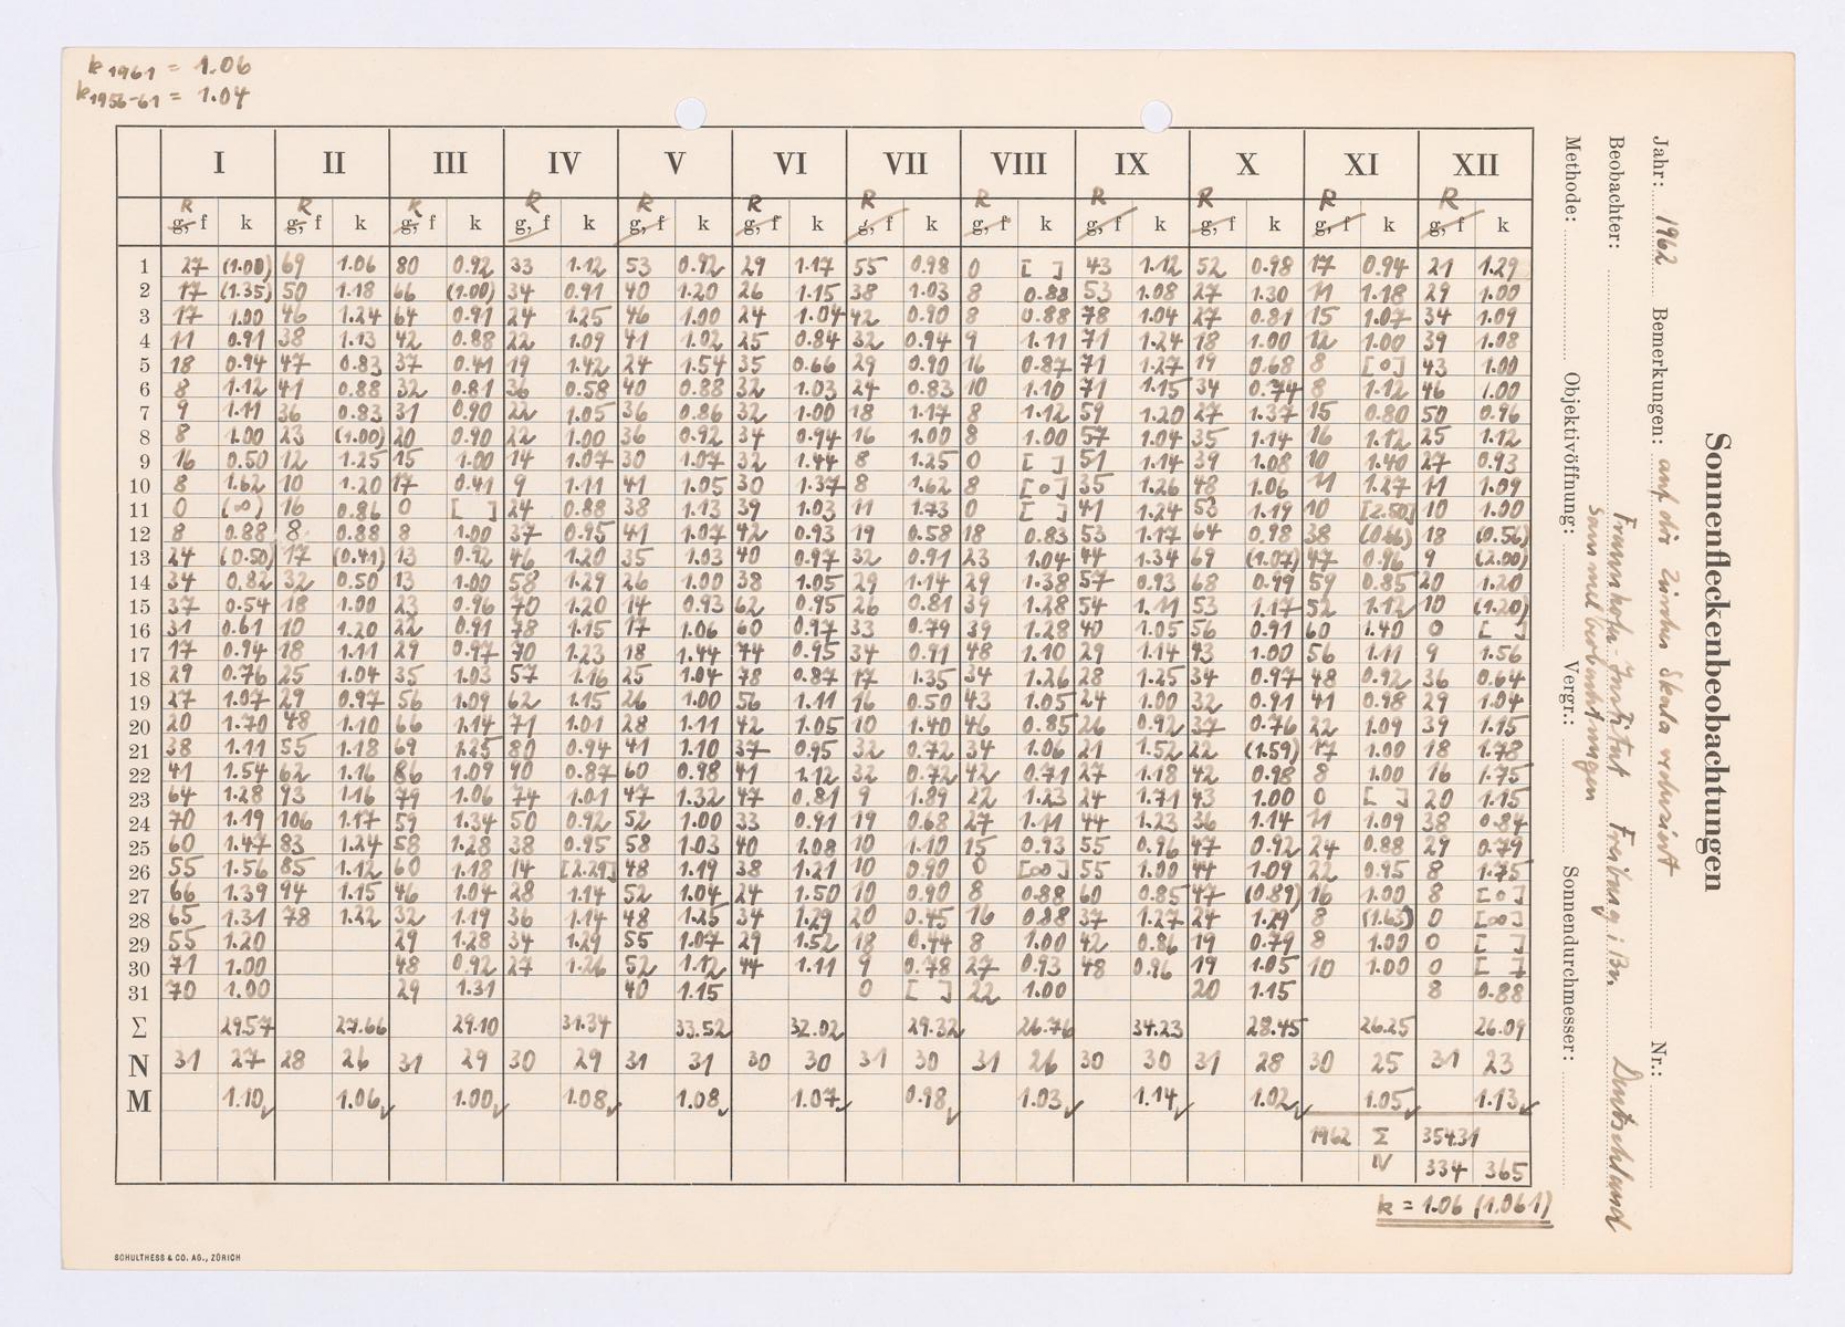 k 1961 = 1.06
k 1956-61 = 1.04
I II III IV V VI VII VIII IX X XI XII
R R R R R R R R R R R R
g, f k g, f k g, f k g, f k g, f k g, f k g, f k g, f k g, f k g, f k g, f k g, f k
1 27 (1.00) 69 1.06 80 0.92 33 1.12 53 0.92 29 1.17 55 0.98 0 [ ] 43 1.12 52 0.98 17 0.94 21 1.29
2 17 (1.35) 50 1.18 66 (1.00) 34 0.91 40 1.20 26 1.15 38 1.03 8 0.88 53 1.08 27 1.30 11 1.18 29 1.00
3 17 1.00 46 1.24 64 0.91 24 1.25 46 1.00 24 1.04 42 0.90 8 0.88 78 1.04 27 0.81 15 1.07 34 1.09
4 11 0.91 38 1.13 42 0.88 22 1.09 41 1.02 25 0.84 32 0.94 9 1.11 71 1.24 18 1.00 12 1.00 39 1.08
5 18 0.94 47 0.83 37 0.41 19 1.42 24 1.54 35 0.66 29 0.90 16 0.87 71 1.27 19 0.68 8 [0] 43 1.00
6 8 1.12 41 0.88 32 0.81 36 0.58 40 0.88 32 1.03 24 0.83 10 1.10 71 1.15 34 0.74 8 1.12 46 1.00
7 9 1.11 36 0.83 31 0.90 22 1.05 36 0.86 32 1.00 18 1.17 8 1.12 59 1.20 27 1.37 15 0.80 50 0.96
8 8 1.00 23 (1.00) 20 0.90 22 1.00 36 0.92 34 0.94 16 1.00 8 1.00 57 1.04 35 1.14 16 1.12 25 1.12
9 16 0.50 12 1.25 15 1.00 14 1.07 30 1.07 32 1.44 8 1.25 0 [ ] 51 1.14 39 1.08 10 1.40 27 0.93
10 8 1.62 10 1.20 17 0.41 9 1.11 41 1.05 30 1.37 8 1.62 8 [0] 35 1.26 48 1.06 11 1.27 11 1.09
11 0 (∞) 16 0.86 0 [ ] 24 0.88 38 1.13 39 1.03 11 1.73 0 [ ] 41 1.24 53 1.19 10 [2.50] 10 1.00
12 8 0.88 8 0.88 8 1.00 37 0.95 41 1.07 42 0.93 19 0.58 18 0.83 53 1.17 64 0.98 38 (0.66) 18 (0.56)
13 24 (0.50) 17 (0.41) 13 0.92 46 1.20 35 1.03 40 0.97 32 0.91 23 1.04 44 1.34 69 (1.07) 47 0.96 9 (2.00)
14 34 0.82 32 0.50 13 1.00 58 1.29 26 1.00 38 1.05 29 1.14 29 1.38 57 0.93 68 0.99 59 0.85 20 1.20
15 37 0.54 18 1.00 23 0.96 70 1.20 14 0.93 62 0.95 26 0.81 39 1.28 54 1.11 53 1.17 52 1.12 10 (1.20)
16 31 0.61 10 1.20 22 0.91 78 1.15 17 1.06 60 0.97 33 0.79 39 1.28 40 1.05 56 0.91 60 1.40 0 [ ]
17 17 0.94 18 1.11 29 0.97 70 1.23 18 1.44 74 0.95 34 0.91 48 1.10 29 1.14 43 1.00 56 1.11 9 1.56
18 29 0.76 25 1.04 35 1.03 57 1.16 25 1.04 78 0.87 17 1.35 34 1.26 28 1.25 34 0.97 48 0.92 36 0.64
19 27 1.07 29 0.97 56 1.09 62 1.15 26 1.00 56 1.11 16 0.50 43 1.05 24 1.00 32 0.91 41 0.98 29 1.04
20 20 1.70 48 1.10 66 1.14 71 1.01 28 1.11 42 1.05 10 1.40 46 0.85 26 0.92 37 0.76 22 1.09 39 1.15
21 38 1.11 55 1.18 69 1.25 80 0.94 41 1.10 37 0.95 32 0.72 34 1.06 21 1.52 22 (1.59) 17 1.00 18 1.78
22 41 1.54 62 1.16 86 1.09 90 0.87 60 0.98 41 1.12 32 0.72 42 0.71 27 1.18 42 0.98 8 1.00 16 1.75
23 64 1.28 93 1.16 79 1.06 74 1.01 47 1.32 47 0.81 9 1.89 22 1.23 24 1.71 43 1.00 0 [ ] 20 1.15
24 70 1.19 106 1.17 59 1.34 50 0.92 52 1.00 33 0.91 19 0.68 27 1.11 44 1.23 36 1.14 11 1.09 38 0.84
25 60 1.47 83 1.24 58 1.28 38 0.95 58 1.03 40 1.08 10 1.10 15 0.93 55 0.96 47 0.92 24 0.88 29 0.79
26 55 1.56 85 1.12 60 1.18 14 [2.29] 48 1.19 38 1.21 10 0.90 0 [∞] 55 1.00 44 1.09 22 0.95 8 1.75
27 66 1.39 94 1.15 46 1.04 28 1.14 52 1.04 24 1.50 10 0.90 8 0.88 60 0.85 47 (0.89) 16 1.00 8 [0]
28 65 1.31 78 1.22 32 1.19 36 1.14 48 1.25 34 1.29 20 0.45 16 0.88 37 1.27 24 1.29 8 (1.63) 0 [∞]
29 55 1.20 29 1.28 34 1.29 55 1.07 29 1.52 18 0.44 8 1.00 42 0.86 19 0.79 8 1.00 0 [ ]
30 71 1.00 48 0.92 27 1.26 52 1.12 44 1.11 9 0.78 27 0.93 48 0.96 19 1.05 10 1.00 0 [ ]
31 70 1.00 29 1.31 40 1.15 0 [ ] 22 1.00 20 1.15 8 0.88
Σ 29.57 27.66 29.10 31.34 33.52 32.02 29.32 26.76 34.23 28.45 26.25 26.09
N 31 27 28 26 31 29 30 29 31 31 30 30 31 30 31 26 30 30 31 28 30 25 31 23
M 1.10 1.06 1.00 1.08 1.08 1.07 0.98 1.03 1.14 1.02 1.05 1.13
1962 Σ 354.31
N 334 365
k = 1.06 (1.061)
SCHULTHESS & CO. AG., ZÜRICH
Sonnenfleckenbeobachtungen
Jahr: 1962 Bemerkungen: auf die Zürcher Skala reduziert Nr.:
Beobachter: Fraunhofer-Institut Freiburg i. Br. Deutschland
Sammelbeobachtungen
Methode: Objektivöffnung: Vergr.: Sonnendurchmesser: